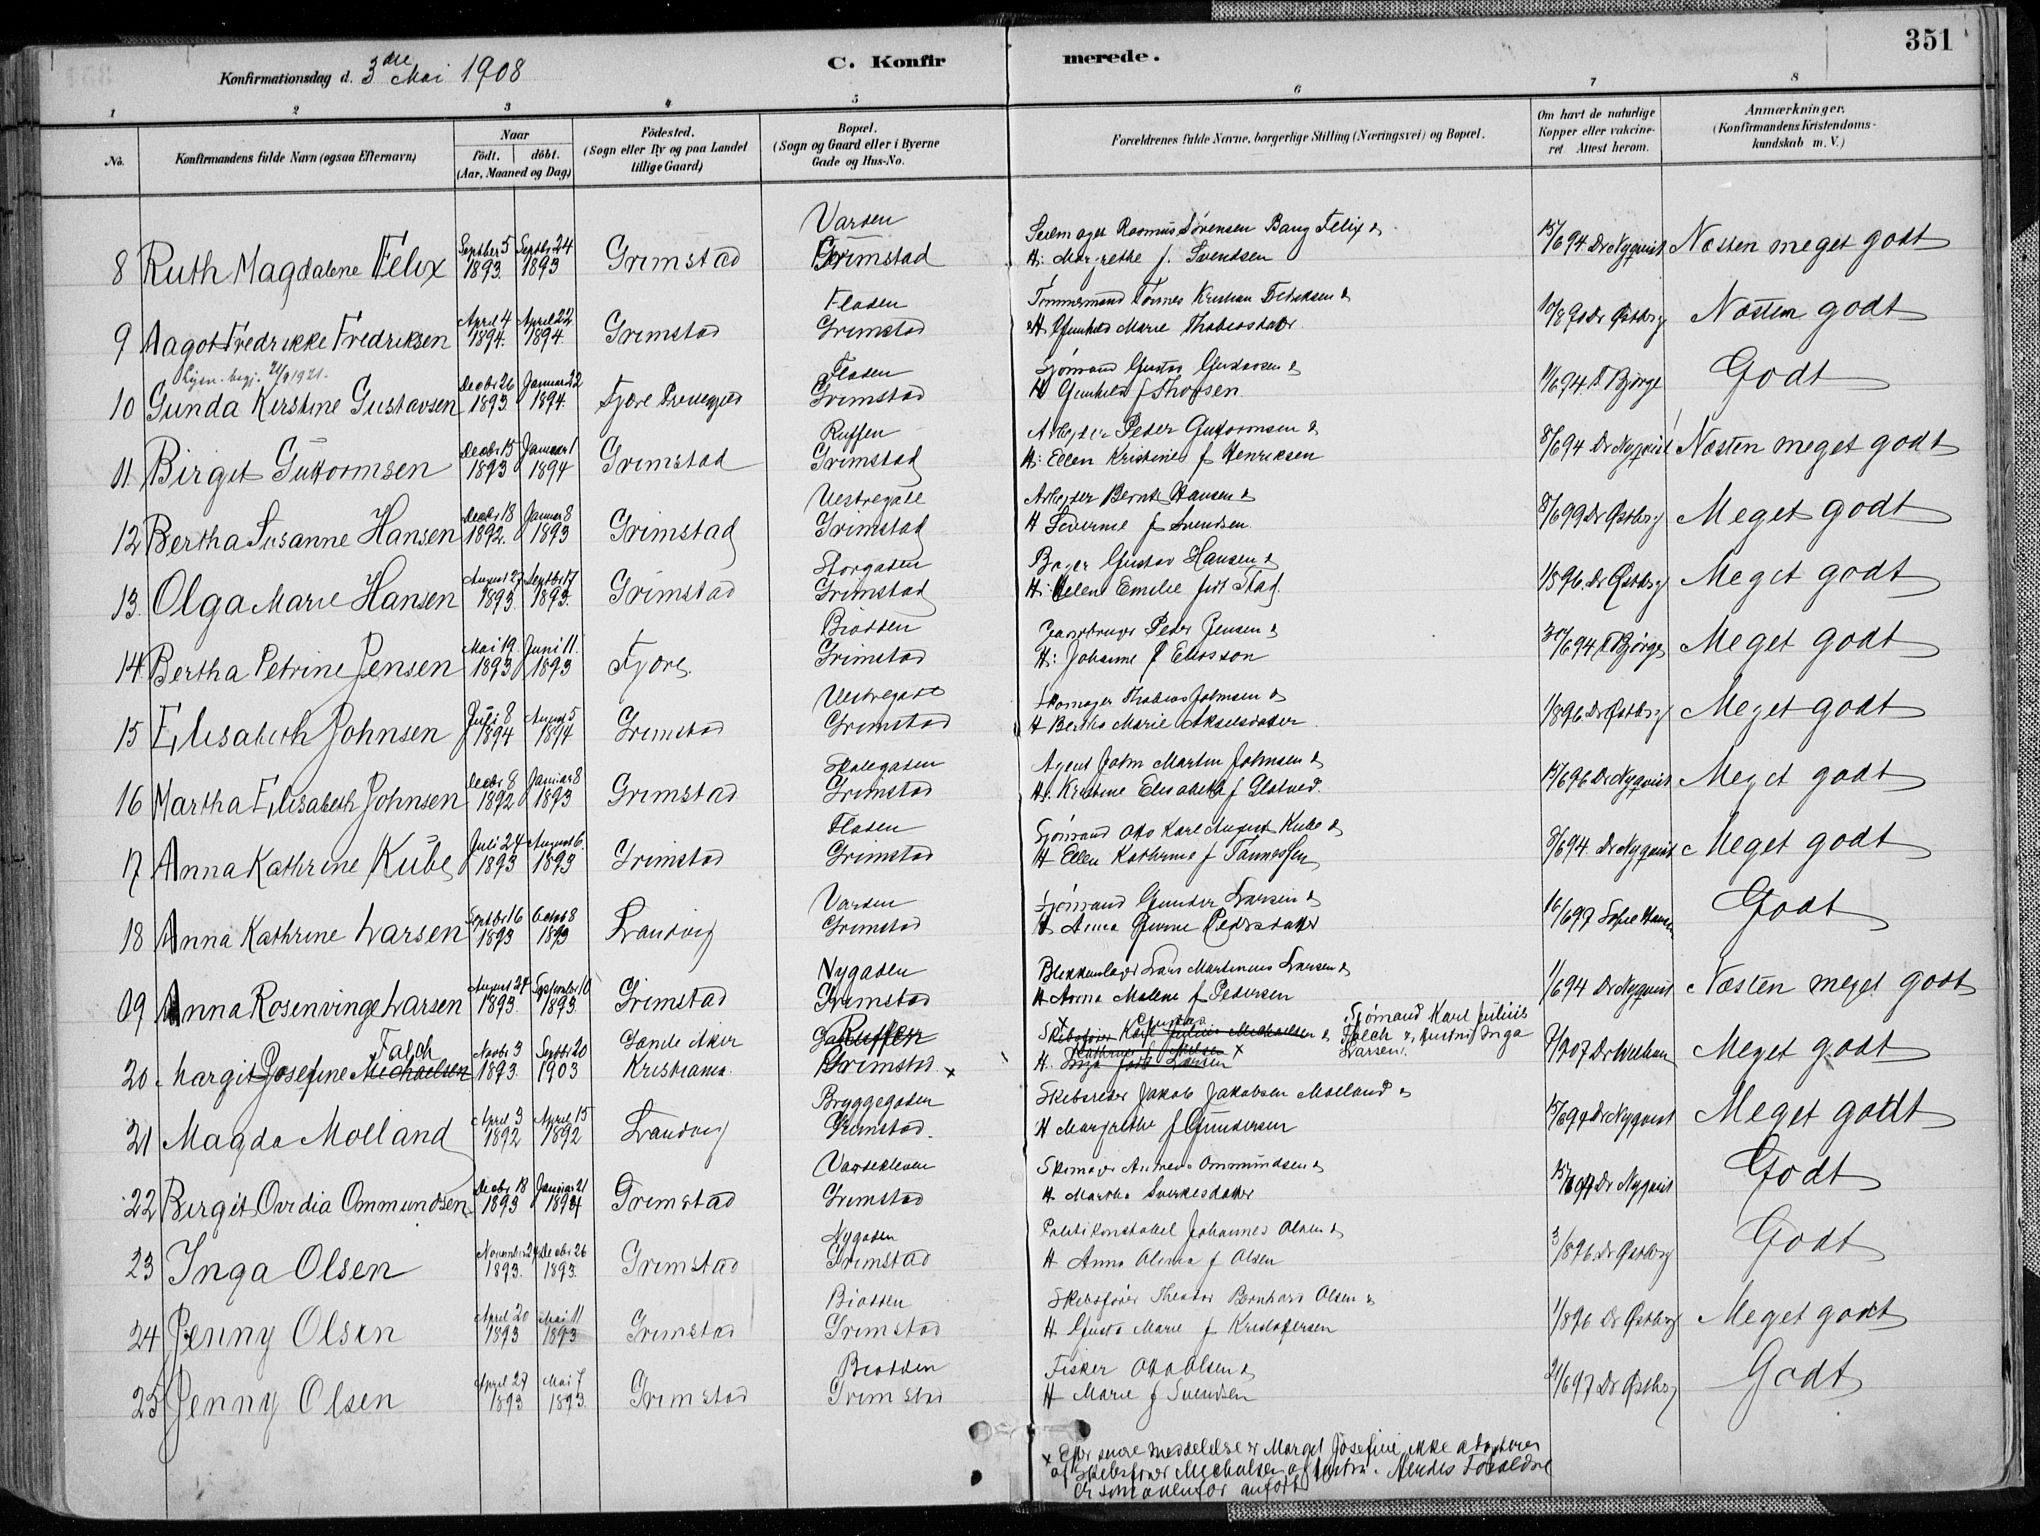 351
Konfirmationsdag d. 3die Mai 1908
C. Konfir merede.
1 2 3 4 5 6 7 8
No.
Konfirmandens fulde Navn (ogsaa Efternavn)
Naar
födt. döbt.
(Aar, Maaned og Dag)
Födested.
(Sogn eller By og paa Landet
tillige Gaard)
Bopæl.
(Sogn og Gaard eller i Byerne
Gade og Hus-No.
Forældrenes fulde Navne, borgerlige Stilling (Næringsvei) og Bopæl.
Om havt de naturlige
Kopper eller vakcine-
ret Attest herom.
Anmærkninger.
(Konfirmandens Kristendoms-
kundskab m. V.)
8 Ruth Magdalene Felix Septber 5 1893. Septbr 24 1893 Grimstad Varden Grimstad
Rasmus Sørensen Bang Felix &
H: Margrethe f. Svendsen
15/6 94 Dr Nyquist Næsten meget godt
9 Aagot Fredrikke Fredriksen April 4 1894. April 22 1894. Grimstad Fladen Grimstad
Tømmermand Tønnes Kristian Fredriksen &
H Gunhild Marie Thobiasdatter
Dr Østberg Næsten godt
10 Gunda Kirstine Gustavsen Decbr 26 1893. Januar 22 1894. Fjære Fladen Grimstad
Sjømand Gustav Gustavsen &
H Gunhild f Thorsen
11/6 94. T Bjørge Godt
11 Birgit Guttormsen Decbr 15 1893 Januar 1 1894 Grimstad Ruffen Grimstad
Arbejder Peder Guttormsen &
H: Ellen Kristine f Henriksen
8/6 94 Dr Nyquist Næsten meget godt
12 Bertha Susanne Hansen Decbr 18 1892. Januar 8 1893 Grimstad Vestregate Grimstad
Arbejder Bernt Hansen &
H Severine f Svendsen
8/6 99 Dr Østberg Meget godt
13. Olga Marie Hansen August 27 1893. Septbr 17 1893. Grimstad Storgaden Grimstad
Bager Gustav Hansen &
H: Helene Emilie født Stag
1/8 96. Dr Østberg Meget godt
14 Bertha Petrine Jensen Mai 19. 1893 Juni 11. 1893 Fjære Biodden Grimstad
Peder Jensen &
H: Johanne f Eliasson
30/6 94 T Bjørge Meget godt
15 Elisabeth Johnsen Juli 8 1894 August 5 1894 Grimstad Vestregate Grimstad
Skomager Thobias Johnsen &
H Bertha Marie Akselsdatter
1/8 96 Dr Østberg Meget godt
16 Martha Elisabeth Johnsen Decbr 8 1892 Januar 8 1893 Grimstad Skolegaden Grimstad
Agent John Martin Johnsen &
H. Kristine Elisabeth f Glatved.
15/6 96 Dr Nyquist Meget godt
17 Anna Kathrine Kube Juli 24 1893 August 6. 1893 Grimstad Fladen Grimstad
Sjømand Otto Karl August Kube &
H Ellen Kathrine f Tønnessen
8/6 94. Dr Nyquist Meget godt
18 Anna Kathrine Larsen Septbr 16 1893 Octob 8 1893 Landvig Varden Grimstad
Sjømand Gunder Larsen &
H Anna Gurine Pedersdatter
16/6 97 Godt
19 Anna Rosenvinge Larsen August 24 1893. September 10 1893. Grimstad Nygaden Grimstad
Blikkenslager Lars Martinius Larsen &
H Anna Malene f Pedersen
1/6 94 Dr Nyquist Næsten meget godt
20 Margit Josefine Michaelsen Falch Novbr 3 1893. Septbr 20 1903 Gamle Aker Kristiania. Ruffen Grimstad x
Skibsfører Karl Julius Michaelsen &
H. Inga født Larsen
Sjømand Karl Julius
Falch & Hustru Inga
Larsen.
Meget godt
21 Magda Molland April 3 1892 April 15 1892 Landvig Bryggegaden Grimstad.
Skibsreder Jakob Jakobsen Molland &
H Margrethe f Gundersen
Dr Nyquist Meget godt
22 Birgit Ovidia Ommundsen Decbr 18 1893 Januar 21 1894 Grimstad Vardekleven Grimstad
Skomager Andreas Ommundsen &
H Martha Sverkesdatter
Dr Nyquist Godt
23 Inga Olsen November 24 1893. Decbr 26 1893. Grimstad Nygaden Grimstad
Politikonstabel Johannes Olsen &
H Anna Olina f Olsen
3/8 96. Dr Østberg Godt
24 Jenny Olsen April 20 1893 Mai 11 1893 Grimstad Biodden Grimstad
Skibsfører Theodor Bernhard Olsen &
H Gusta Marie f Kristofersen
1/8 96 Dr Østberg Meget godt
25 Jenny Olsen April 27 1893 Mai 7 1893. Grimstad Biodden Grimstad
Fisker Otto Olsen &
H Marie f Svendsen
21/6 97 Dr Østberg Godt
x Efter senere meddelelse er Margit Josefine ikke adopteret
af Skibsfører Michalsen og hustru. Hendes Forældre
er som ovenfor anført